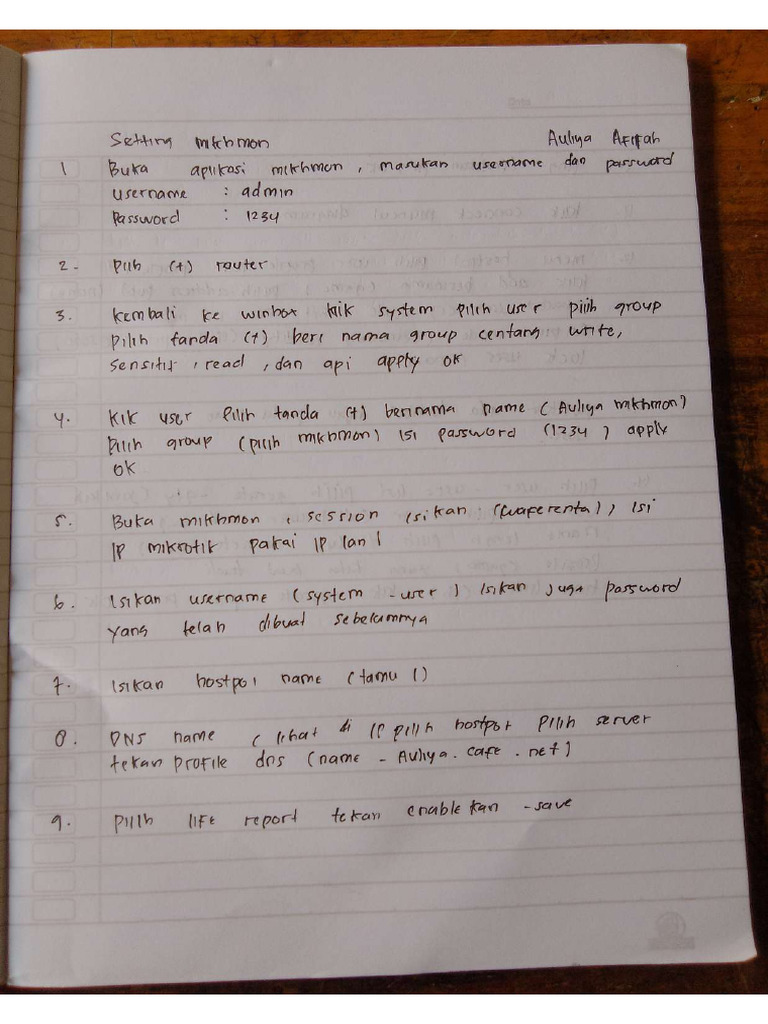 Setting mikhmon Auliya Afifah
1 Buka aplikasi mikhmon, masukan username dan password
username : admin
Password : 1234
2. Pilih (+) router
3. kembali ke winbox klik system pilih user pilih group
pilih tanda (+) beri nama group centang write,
sensitif, read, dan api apply ok
4. Klik user Pilih tanda (+) berinama name (Auliya mikhmon)
pilih group (pilih mikhmon) isi password (1234) apply
ok
5. Buka mikhmon, session isikan (), isi
IP mikrotik pakai IP lan 1
6. Isikan username (system - user) isikan juga password
yang telah dibuat sebelumnya
7. Isikan hostpot name (tamu 1)
8. DNS name (lihat di IP pilih hostpot pilih server
tekan profile dns (name - Auliya.cafe.net)
9. Pilih life report tekan enable kan - save